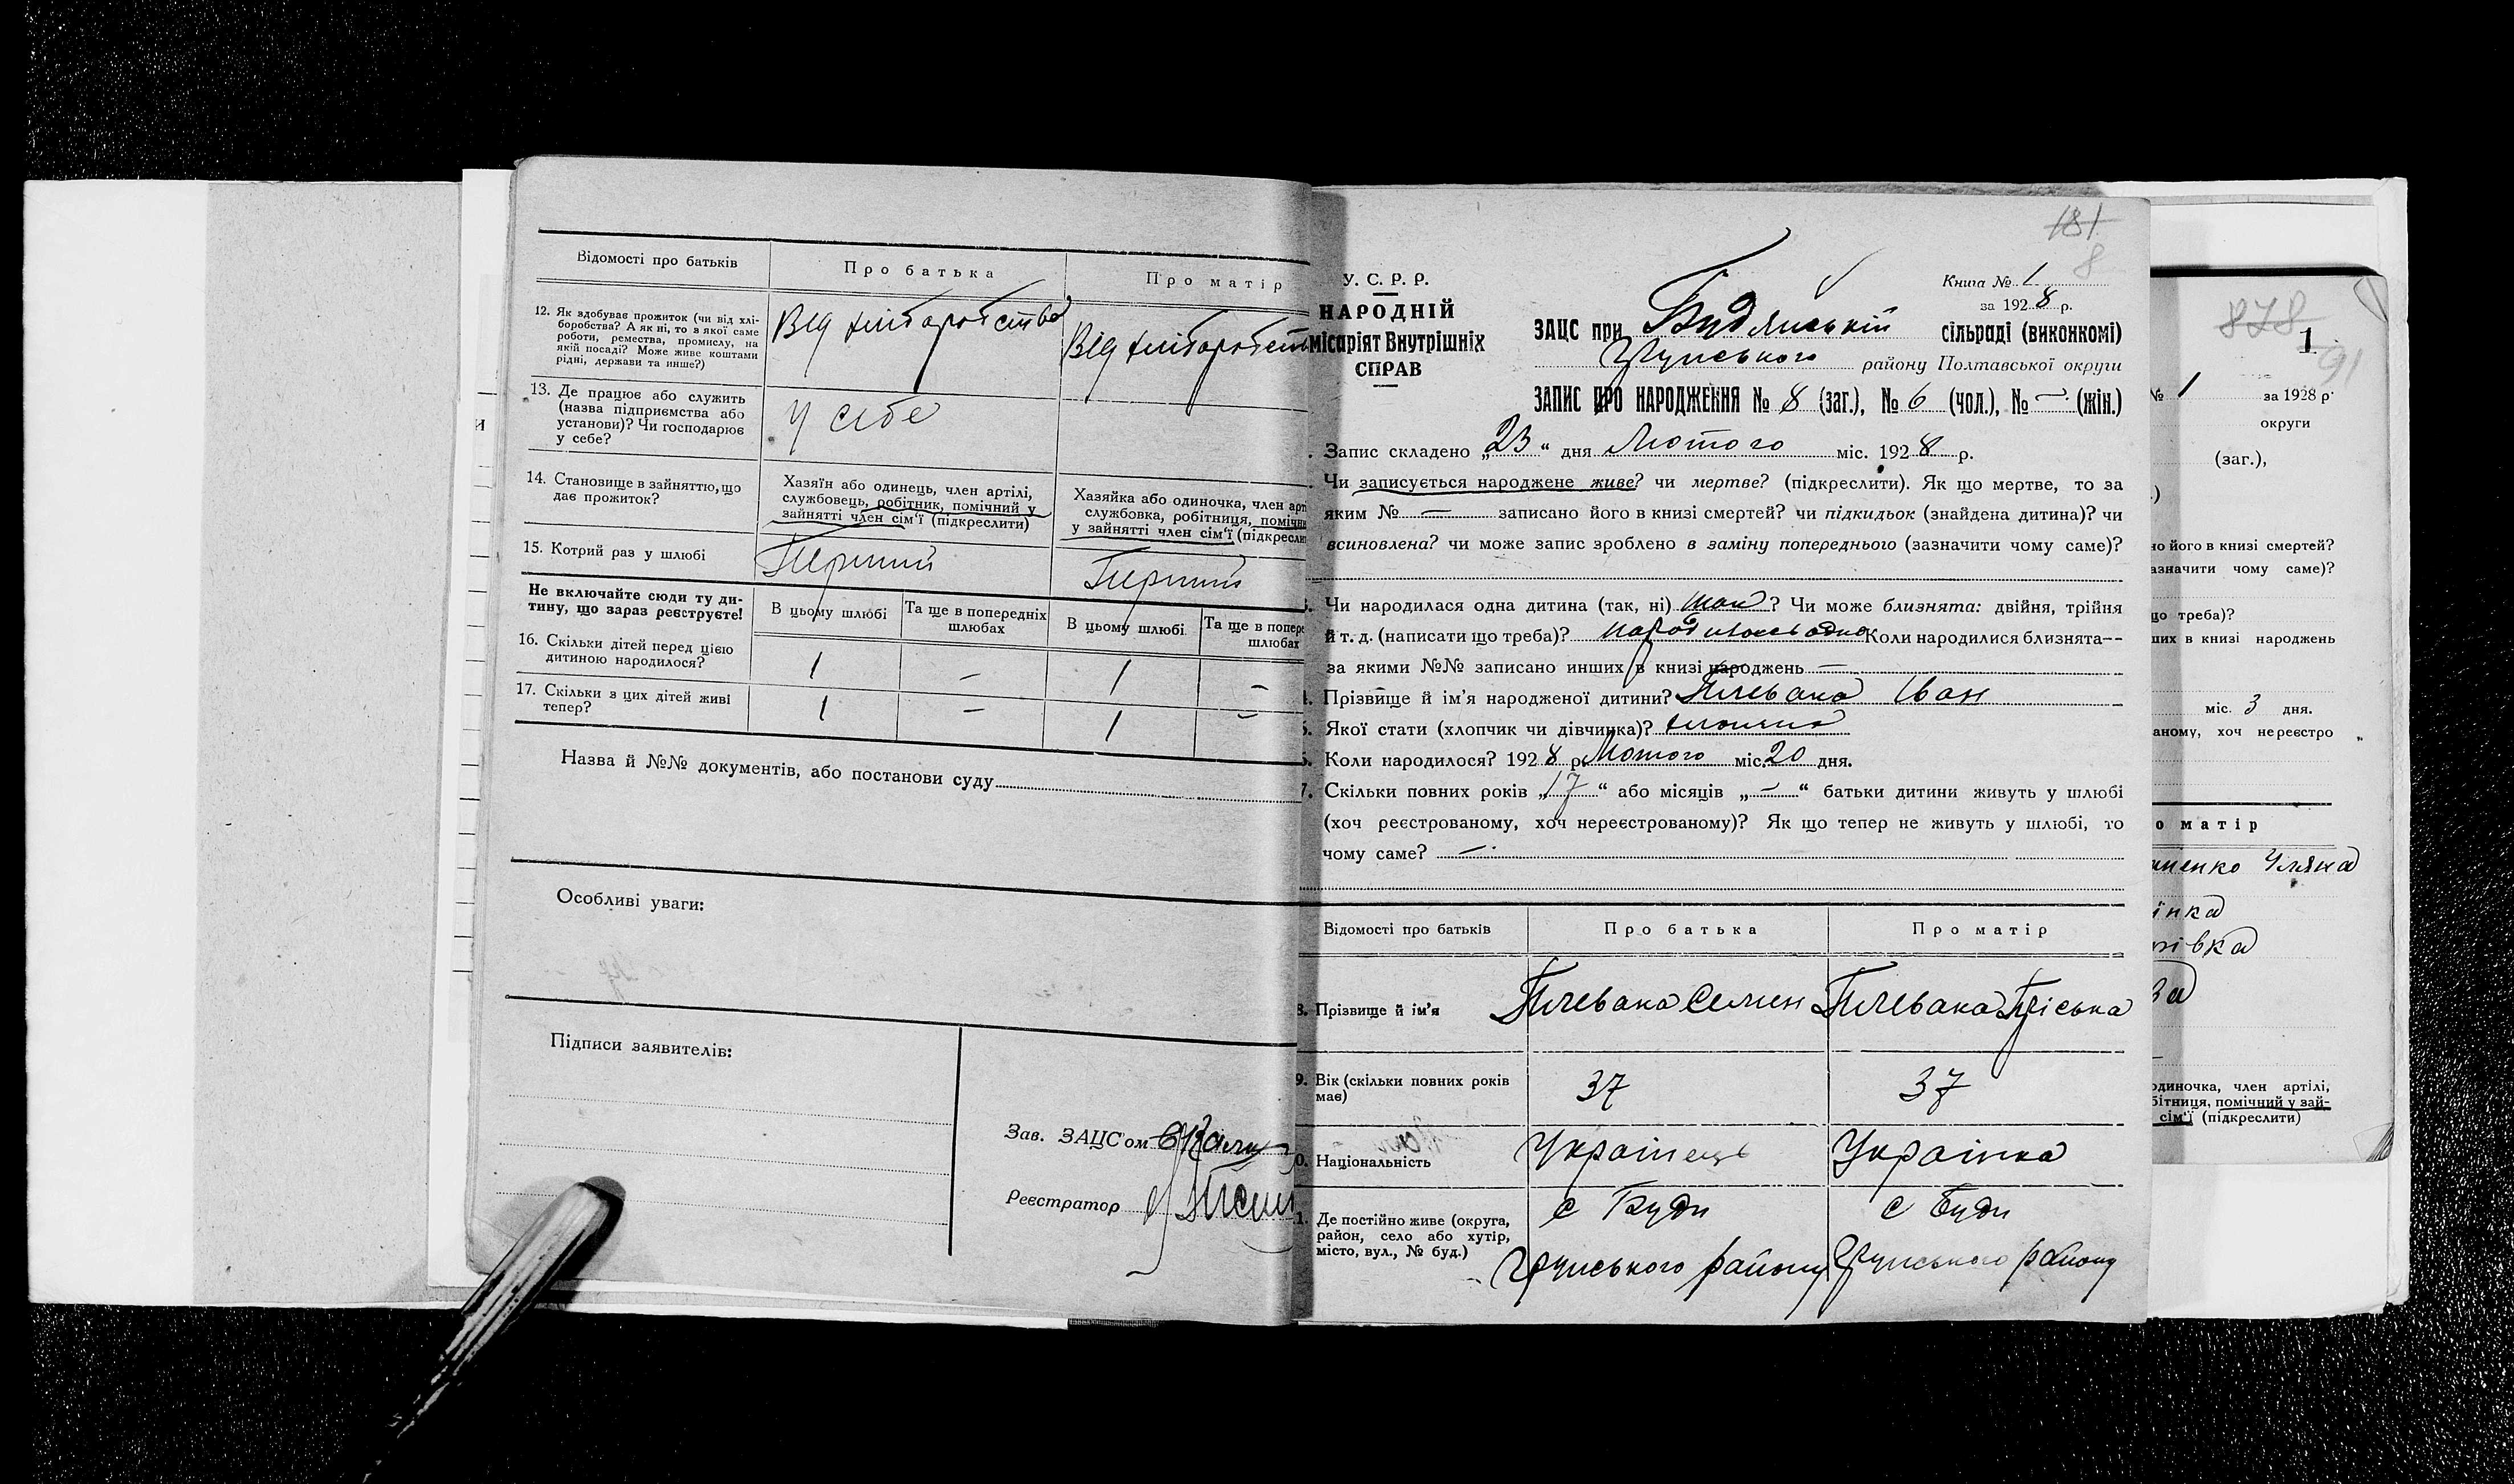 Відомості про батьків
Про батька
Про матір
12. Як здобуває прожиток (чи від хлі-
боробства? А як ні, то в якої саме
роботи, ремества, промислу, на
якій посаді? Може живе коштами
рідні, держави та инше?)
Від хліборобства
Від хліборобств
13. Де працює або служить
(назва підприємства або
установи)? Чи господарює
у себе?
У себе
14. Становище в зайняттю, що
дає прожиток?
Хазяїн або одинець, член артілі,
службовець, робітник, помічний у
зайнятті член сім'ї (підкреслити)
Хазяйка або одиночка, член арт
службовка, робітниця, помічн
у зайнятті член сім'ї (підкресли
15. Котрий раз у шлюбі
Перший
Перший
Не включайте сюди ту ди-
тину, що зараз реєструєте!
В цьому шлюбі
Та ще в попередніх
шлюбах
В цьому шлюбі
Та ще в попере
шлюбах
16. Скільки дітей перед цією
дитиною народилося?
1 — 1 —
17. Скільки з цих дітей живі
тепер?
1 — 1 —
Назва й №№ документів, або постанови суду
Особливі уваги:
Підписи заявителів:
Зав. ЗАЦС'ом
Реєстратор
181
8
У. С. Р. Р.
НАРОДНІЙ
місаріят Внутрішніх
СПРАВ
Книга № 1
за 1928 р.
ЗАЦС при Будянській сільраді (виконкомі)
Грунського району Полтавської округи
ЗАПИС ПРО НАРОДЖЕННЯ № 8 (заг.), № 6 (чол.), № — (жін.)
Запис складено „23“ дня Лютого міс. 1928 р.
Чи записується народжене живе? чи мертве? (підкреслити). Як що мертве, то за
яким № — записано його в книзі смертей? чи підкидьок (знайдена дитина)? чи
всиновлена? чи може запис зроблено в заміну попереднього (зазначити чому саме)?
Чи народилася одна дитина (так, ні) так? Чи може близнята: двійня, трійня
й т. д. (написати що треба)? народилось одно Коли народилися близнята—
за якими №№ записано инших в книзі народжень —
Прізвище й ім'я народженої дитини? Плевака Іван
Якої стати (хлопчик чи дівчинка)?
Коли народилося? 1928 р. Лютого міс. 20 дня.
7. Скільки повних років „17“ або місяців „—“ батьки дитини живуть у шлюбі
(хоч реєстрованому, хоч нереєстрованому)? Як що тепер не живуть у шлюбі, то
чому саме? —
Відомості про батьків
Про батька
Про матір
8. Прізвище й ім'я
Плевака Семен
Плевака Пріська
9. Вік (скільки повних років
має)
37
37
0. Національність
Українець
Українка
1. Де постійно живе (округа,
район, село або хутір,
місто, вул., № буд.)
с Буди
Грунського району
с Буди
Грунського району
878
1
91
№ 1 за 1928 р.
округи
(заг.),
но його в книзі смертей?
азначити чому саме)?
що треба)?
ших в книзі народжень
міс. 3 дня.
аному, хоч нереєстро
о матір
ненко Уляна
їнка
івка
одиночка, член артілі,
бітниця, помічний у зай-
сім'ї (підкреслити)